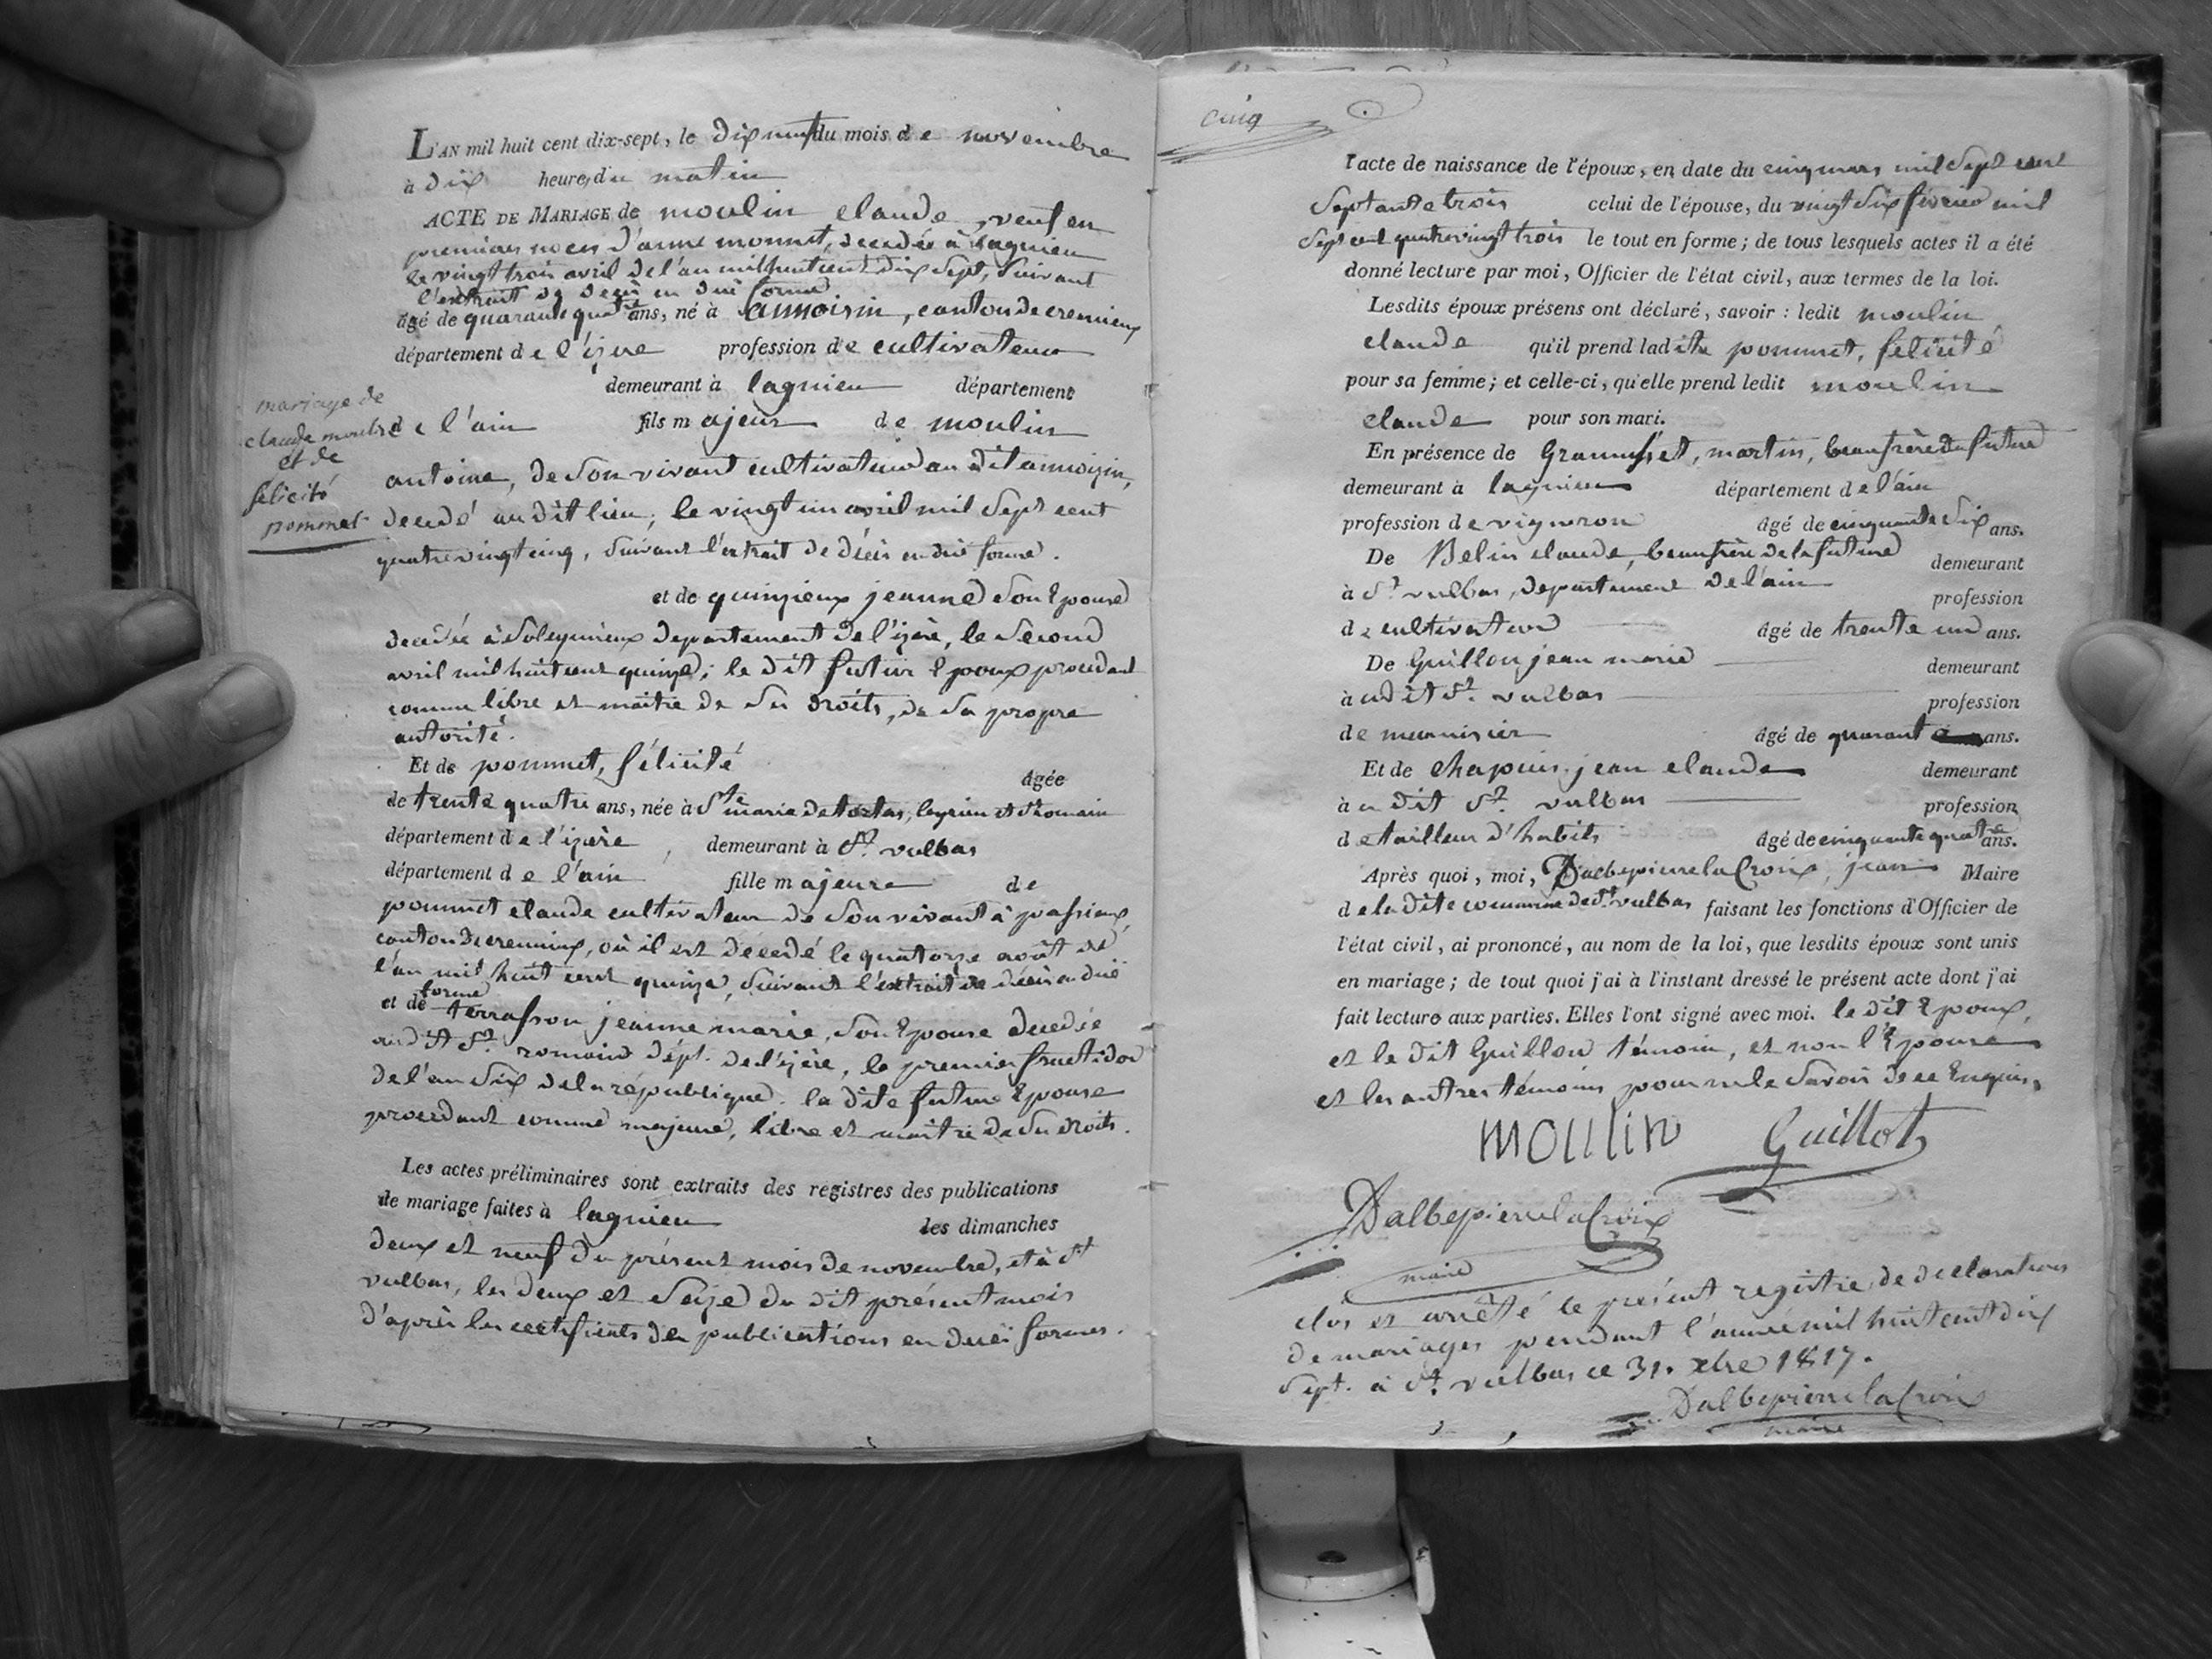 L'AN mil huit cent dix-sept, le dix neuf du mois de novembre
à dix heures du matin
ACTE DE MARIAGE de moulin claude, veuf en
premieres noces d'anne monnet, decedée à lagnieu
le vingt trois avril de l'an mil huit cent dix sept, suivant
l'extrait de decès en due forme
âgé de quarante quatre ans, né à annoisin, canton de cremieux
département de l'izere profession de cultivateur
demeurant à lagnieu département
de l'ain fils majeur de moulin
antoine, de son vivant cultivateur au dit annoizin,
decedé au dit lieu, le vingt un avril mil sept cent
quatre vingt cinq, suivant l'extrait de décès en due forme.
et de quinzieux jeanne son Epouse
decedée à Soleymieux departement de l'izère, le second
avril mil huit cent quinze; le dit futur Epoux procedant
comme libre et maître de ses droits, de sa propre
autorité.
Et de pommet, félicité âgée
de trente quatre ans, née à Ste marie de tortas, leyrieu et St romain
département de l'izère, demeurant à St. vulbas
département de l'ain fille majeure de
pommet claude cultivateur de son vivant à passieux,
canton de cremieux, où il est décedé le quatorze août de
l'an mil huit cent quinze, suivant l'extrait de décès en due
forme
et de terrasson jeanne marie, son Epouse decedée
au dit St. romain dépt. de l'izère, le premier fructidor
de l'an six de la république. la dite future Epouse
procedant comme majeure, libre et maître de ses droits.
Les actes préliminaires sont extraits des registres des publications
de mariage faites à lagnieu les dimanches
deux et neuf du présent mois de novembre, et à St
vulbas, les deux et seize du dit présent mois
d'après les certificats de publications en dues formes.
mariage de
claude moulin
et de
félicité
pommet
cinq
l'acte de naissance de l'époux, en date du cinq mars mil sept cent
septante trois celui de l'épouse, du vingt six fevrier mil
sept cent quatre vingt trois le tout en forme; de tous lesquels actes il a été
donné lecture par moi, Officier de l'état civil, aux termes de la loi.
Lesdits époux présens ont déclaré, savoir : ledit moulin
claude qu'il prend ladite pommet, félicité
pour sa femme; et celle-ci, qu'elle prend ledit moulin
claude pour son mari.
En présence de Grammsset, martin, beaufrère du futur
demeurant à lagnieu département de l'ain
profession de vigneron âgé de cinquante six ans.
De Belin claude, beaufrère de la future demeurant
à St. vulbas, departement de l'ain profession
de cultivateur âgé de trente un ans.
De Guillon jean marie demeurant
à udit St. vulbas profession
de meunisier âgé de quarante ans.
Et de chapuis jean claude demeurant
à u dit St. vulbas profession
de tailleur d'habits âgé de cinquante quatre ans.
Après quoi, moi, Dalbepierre la Croix, jean Maire
de la dite commune de St. vulbas faisant les fonctions d'Officier de
l'état civil, ai prononcé, au nom de la loi, que lesdits époux sont unis
en mariage; de tout quoi j'ai à l'instant dressé le présent acte dont j'ai
fait lecture aux parties. Elles l'ont signé avec moi. le dit Epoux,
et le dit Guillon témoin, et non l'Epouse
et les autres témoins pour ne le savoir de ce Enquis,
moulin Guillot
Dalbepierre la Croix
maire
clos et arrêté le présent registre de declarations
de mariages pendant l'année mil huit cent dix
sept. à St. vulbas ce 31. xbre 1817.
Dalbepierre la Croix
maire